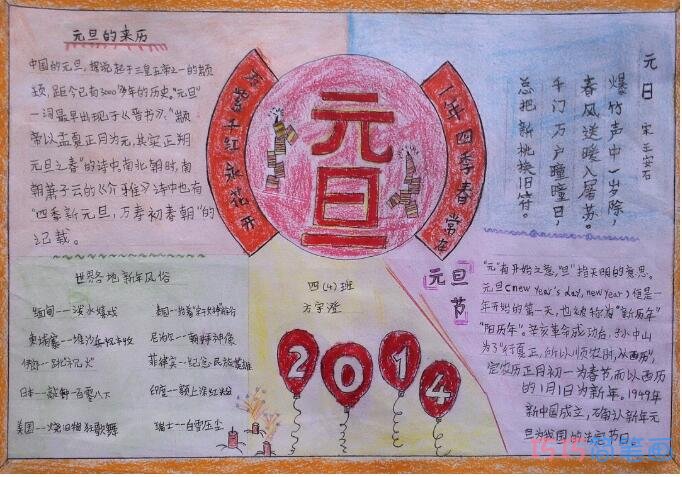 元旦的来历
中国的元旦，据说起于三皇五帝之一的颛
顼，距今已有3000多年的历史。"元旦"
一词最早出现于《晋书》："颛
帝以孟夏正月为元，其实正朔
元旦之春"的诗中，南北朝时，南
朝萧子云的《介雅》诗中也有
"四季新元旦，万寿初春朝"的
记载。
万紫千红永花开
元旦
一年四季春常在
元日
宋 王安石
爆竹声中一岁除，
春风送暖入屠苏。
千门万户曈曈日，
总把新桃换旧符。
世界各地新年风俗
缅甸——泼水嬉戏
日本——敲钟一百零八下
印度——额上涂红粉
瑞士——白雪压尘
四(4)班
方宇澄
2014
元旦节
"元"有开始之意，"旦"指天明的意思。
元旦(new year's day, new year)便是一
年开始的第一天，也被称为"新历年"
"阳历年"。辛亥革命成功后，孙中山
为了"行夏正，所以顺农时，从西历，
定农历正月初一为春节，而以西历
的1月1日为新年。1949年
新中国成立，
旦为我国的法定节日。